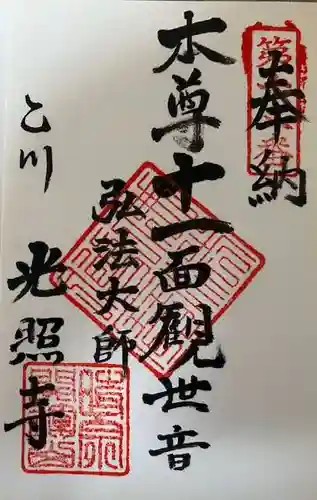 奉納
本尊十一面觀世音
弘法大師
乙川
光照寺